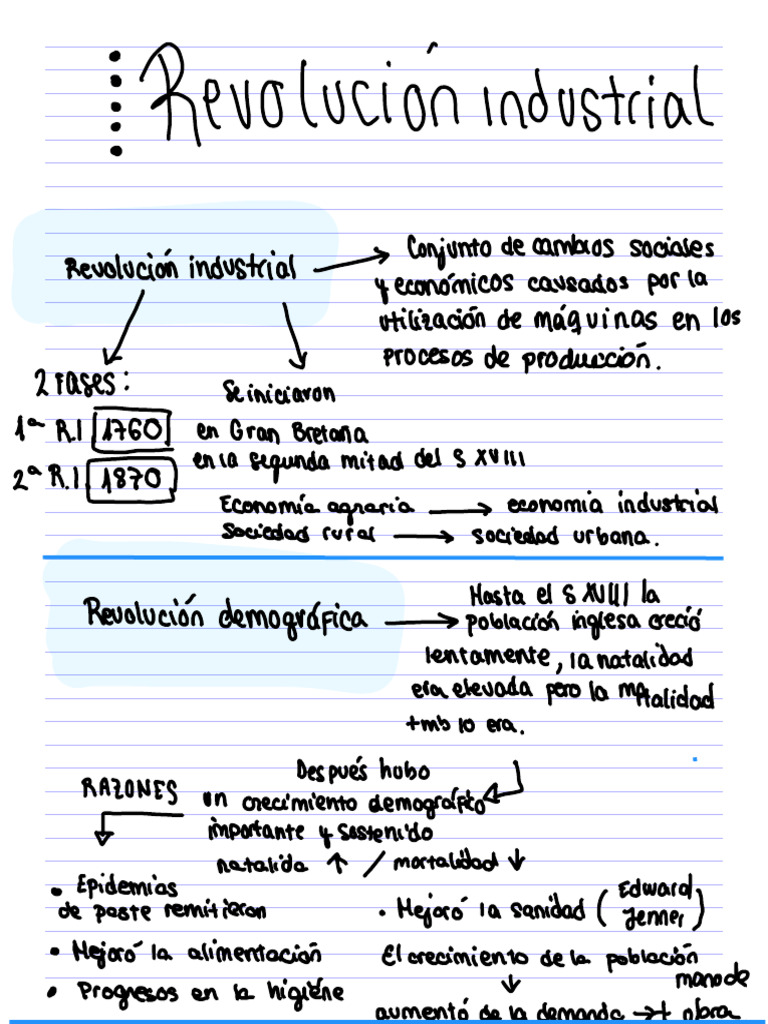 Revolución industrial
Revolución industrial → Conjunto de cambios sociales
y económicos causados por la
utilización de máquinas en los
procesos de producción.
2 Fases:
1ª R.I 1760
2ª R.I. 1870
Se iniciaron
en Gran Bretaña
en la segunda mitad del S XVIII
Economía agraria → economia industrial
Sociedad rural → sociedad urbana.
Revolución demográfica → Hasta el S XVIII la
población inglesa creció
lentamente, la natalidad
era elevada pero la mortalidad
+mb lo era.
Después hubo
un crecimiento demográfico
importante y sostenido
natalida ↑ / mortalidad ↓
RAZONES
• Epidemias
de peste remitieron
• Mejoró la alimentación
• Progresos en la higiene
• Mejoró la sanidad (Edward
Jenner)
El crecimiento de la población
↓
aumentó de la demanda → + mano de
obra